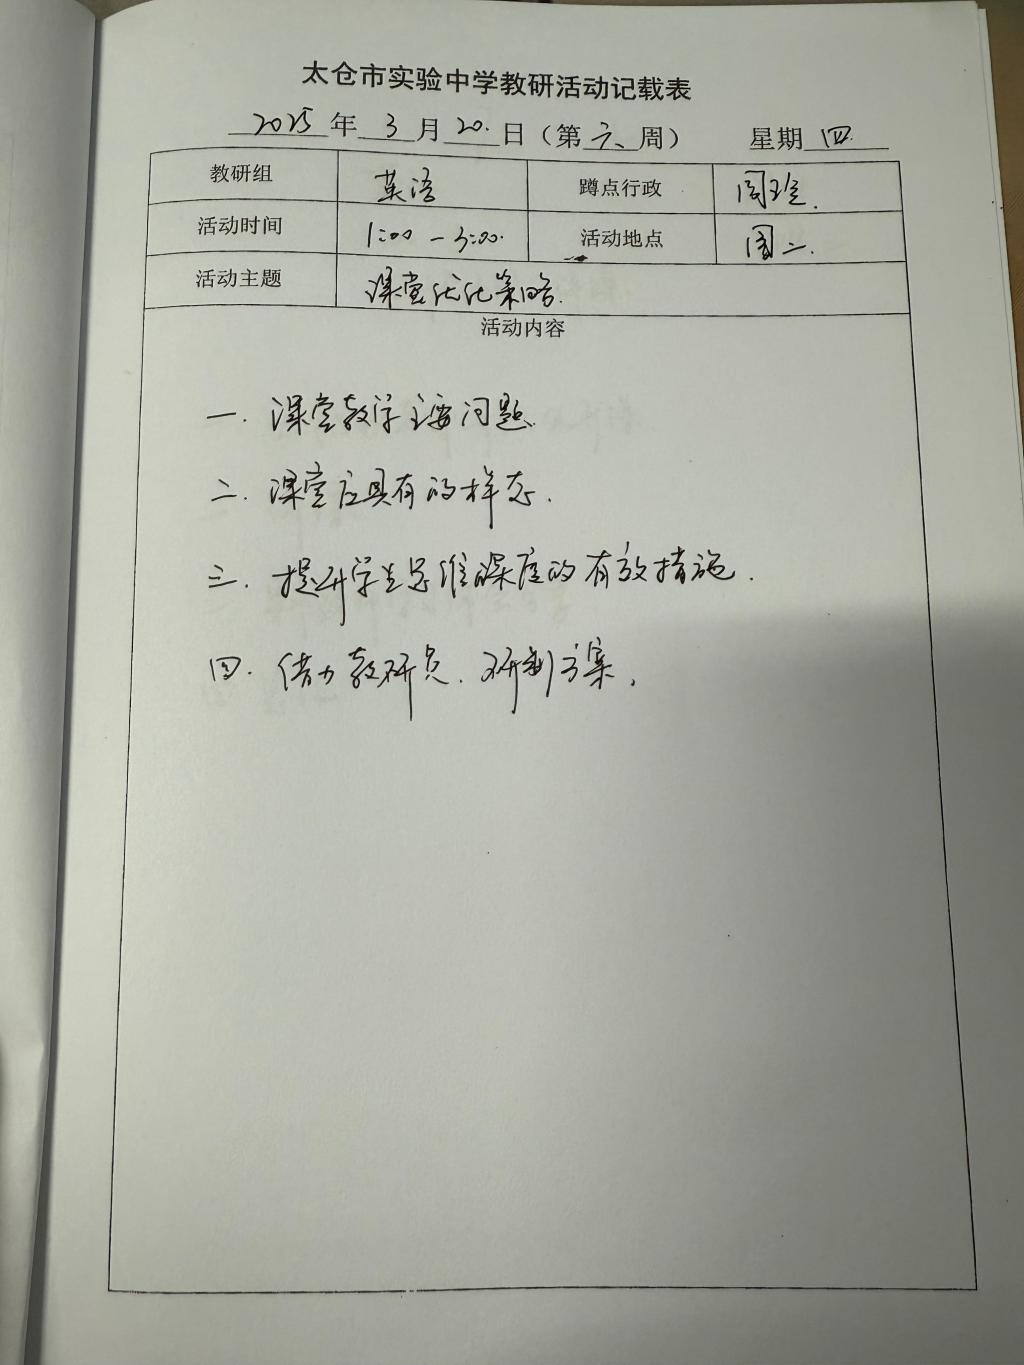 太仓市实验中学教研活动记载表
2025年 3 月 20. 日（第 六、周） 星期 四.
教研组 英语 蹲点行政 周
活动时间 1:00 — 3:00. 活动地点 二.
活动主题 课堂优化策略.
活动内容
一. 课堂教学主要问题.
二. 课堂应具有的样态.
三. 提升学生思维深度的有效措施.
四. 借力教研员、研制方案.